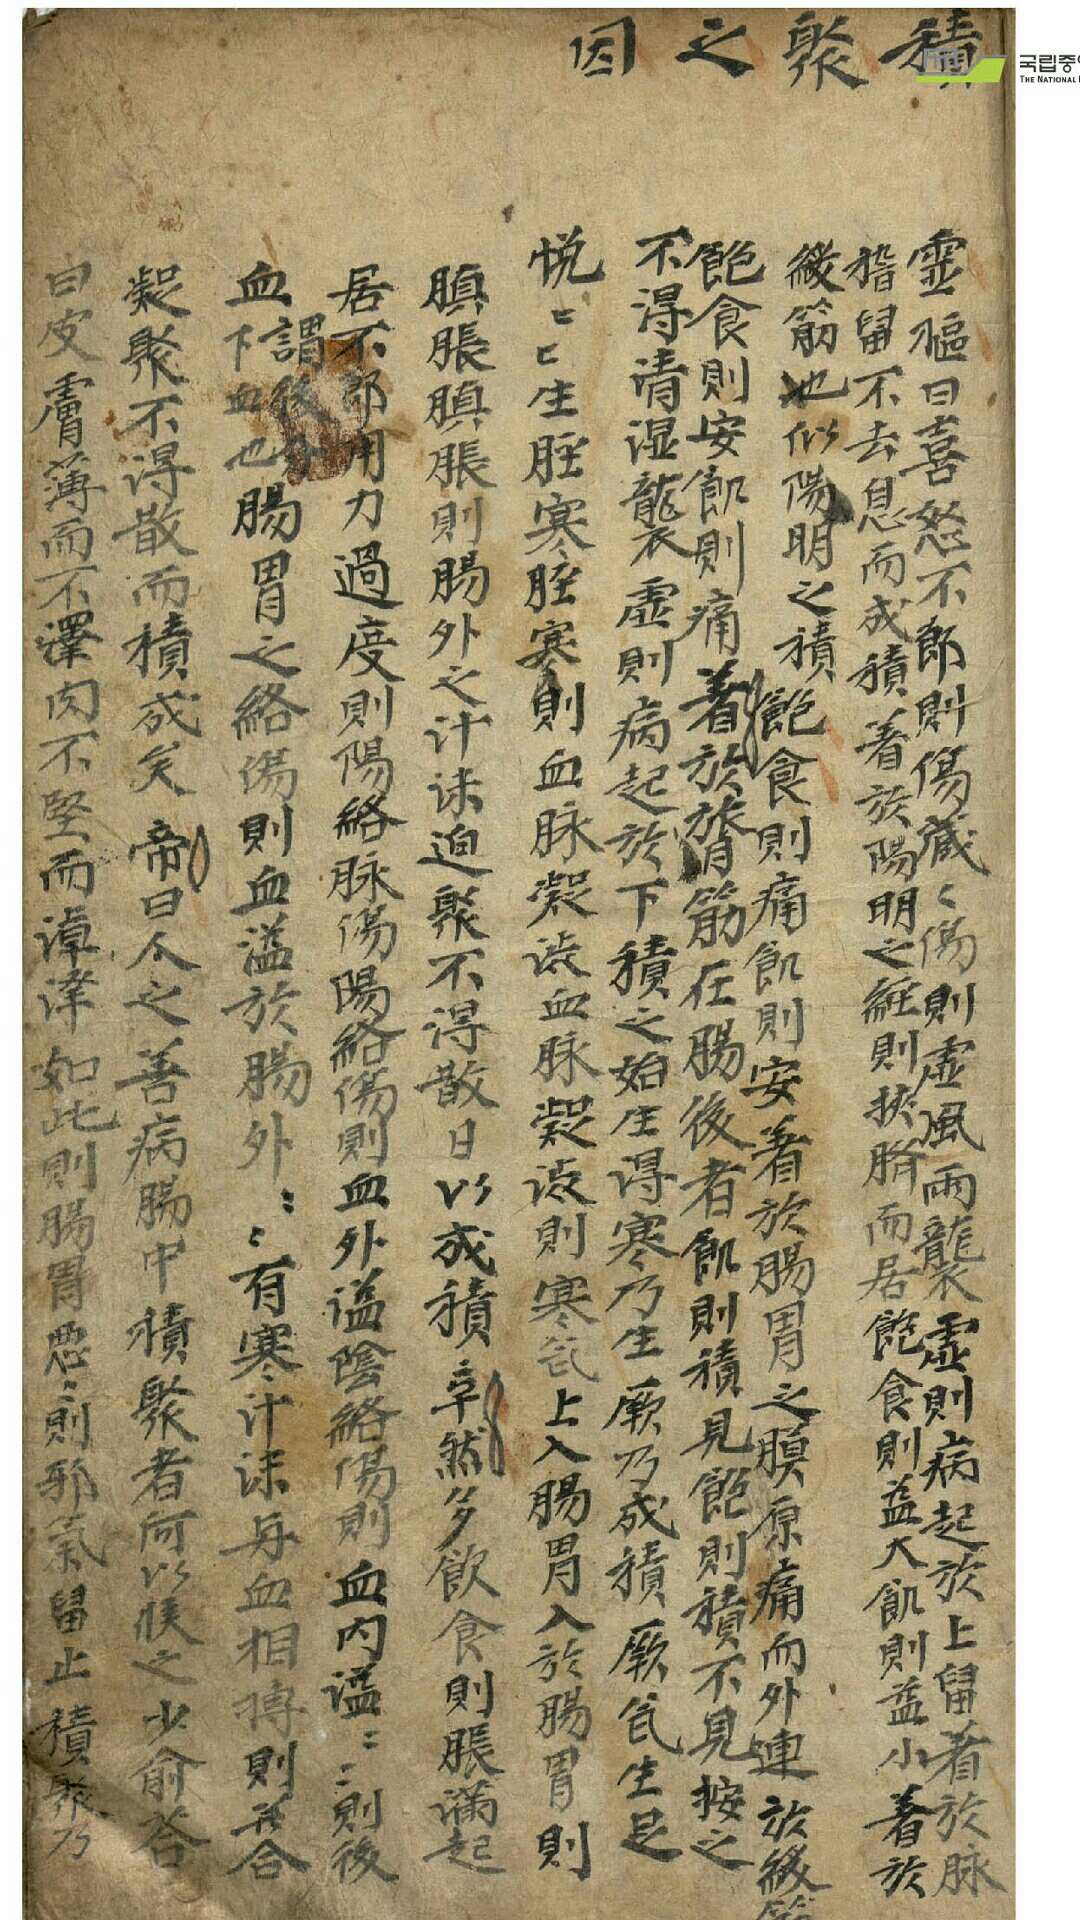 積聚之因
국립중앙
THE NATIONAL
靈樞曰喜怒不節則傷藏〻傷則虛風雨襲虛則病起於上留着於脉
稽留不去息而成積着於陽明之經則挾臍而居飽食則益大飢則益小着於
緩筋也似陽明之積飽食則痛飢則安着於腸胃之膜原痛而外連於緩筋
飽食則安飢則痛着於膂筋在腸後者飢則積見飽則積不見按之
不得清湿襲虛則病起於下積之始生得寒乃生厥乃成積厥気生足
悦〻〻生脛寒脛寒則血脉凝澁血脉凝澁則寒気上入腸胃入於腸胃則
䐜脹䐜脹則腸外之汁沫迫聚不得散日以成積卒然多飮食則脹滿起
居不節用力過度則陽絡脉傷陽絡傷則血外溢陰絡傷則血内溢〻〻則後
血謂後分下血也腸胃之絡傷則血溢於腸外〻〻有寒汁沫与血相搏則并合
凝聚不得散而積成矣帝曰人之善病腸中積聚者何以候之少俞荅
曰皮膚薄而不澤肉不堅而淖澤如此則腸胃悪〻則邪氣留止積聚乃